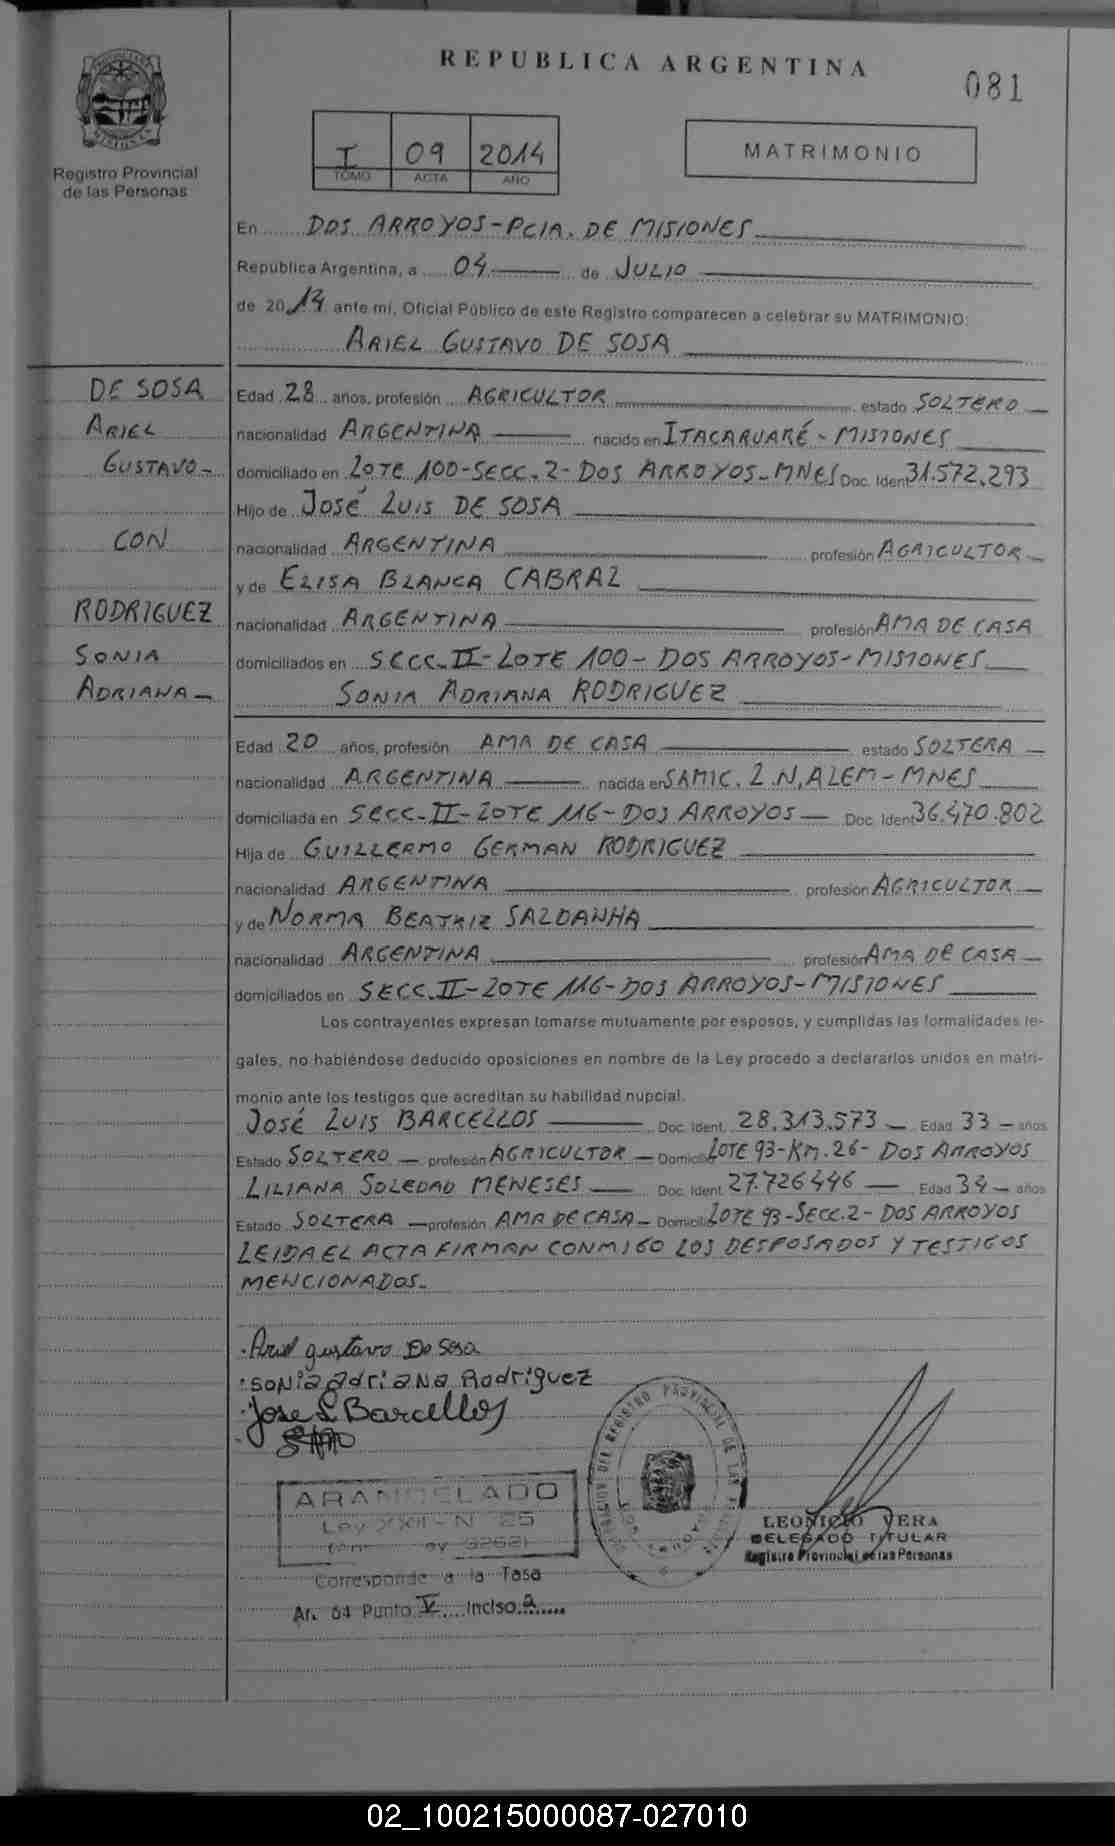 REPUBLICA ARGENTINA
081
Registro Provincial
de las Personas
I 09 2014
TOMO ACTA AÑO
MATRIMONIO
En DOS ARROYOS-PCIA. DE MISIONES
República Argentina, a 04 de JULIO
de 2014 ante mí, Oficial Público de este Registro comparecen a celebrar su MATRIMONIO:
ARIEL GUSTAVO DE SOSA
DE SOSA
ARIEL
GUSTAVO-
CON
RODRIGUEZ
SONIA
ADRIANA-
Edad 28 años, profesión AGRICULTOR estado SOLTERO
nacionalidad ARGENTINA nacido en ITACARUARÉ - MISIONES
domiciliado en LOTE 100-SECC. 2- DOS ARROYOS-MNES Doc. Ident 31.572.293
Hijo de JOSÉ LUIS DE SOSA
nacionalidad ARGENTINA profesión AGRICULTOR
y de ELISA BLANCA CABRAL
nacionalidad ARGENTINA profesión AMA DE CASA
domiciliados en SECC-II-LOTE 100-DOS ARROYOS-MISIONES
SONIA ADRIANA RODRIGUEZ
Edad 20 años, profesión AMA DE CASA estado SOLTERA
nacionalidad ARGENTINA nacida en SAMIC. L.N. ALEM-MNES
domiciliada en SECC-II-LOTE 116-DOS ARROYOS Doc. Ident 36.470.802
Hija de GUILLERMO GERMAN RODRIGUEZ
nacionalidad ARGENTINA profesión AGRICULTOR
y de NORMA BEATRIZ SALDANHA
nacionalidad ARGENTINA profesión AMA DE CASA
domiciliados en SECC. II-LOTE 116-DOS ARROYOS-MISIONES
Los contrayentes expresan tomarse mutuamente por esposos, y cumplidas las formalidades le-
gales, no habiéndose deducido oposiciones en nombre de la Ley procedo a declararlos unidos en matri-
monio ante los testigos que acreditan su habilidad nupcial.
JOSÉ LUIS BARCELLOS Doc. Ident. 28.313.573 Edad 33 años
Estado SOLTERO profesión AGRICULTOR Domicilio LOTE 93-KM.26- DOS ARROYOS
LILIANA SOLEDAD MENESES Doc. Ident 27.726446 Edad 34 años
Estado SOLTERA profesión AMA DE CASA Domicilio LOTE 93-SECC.2- DOS ARROYOS
LEIDA EL ACTA FIRMAN CONMIGO LOS DESPOSADOS Y TESTIGOS
MENCIONADOS.
Ariel gustavo De Sosa
sonia adriana Rodriguez
Jose L Barcellos
ARANCELADO
Ley XXII - N 25
Corresponde a la Tasa
Ar. 64 Punto V Inciso a
LEONICIO VERA
DELEGADO TITULAR
Registro Provincial de las Personas
02_100215000087-027010